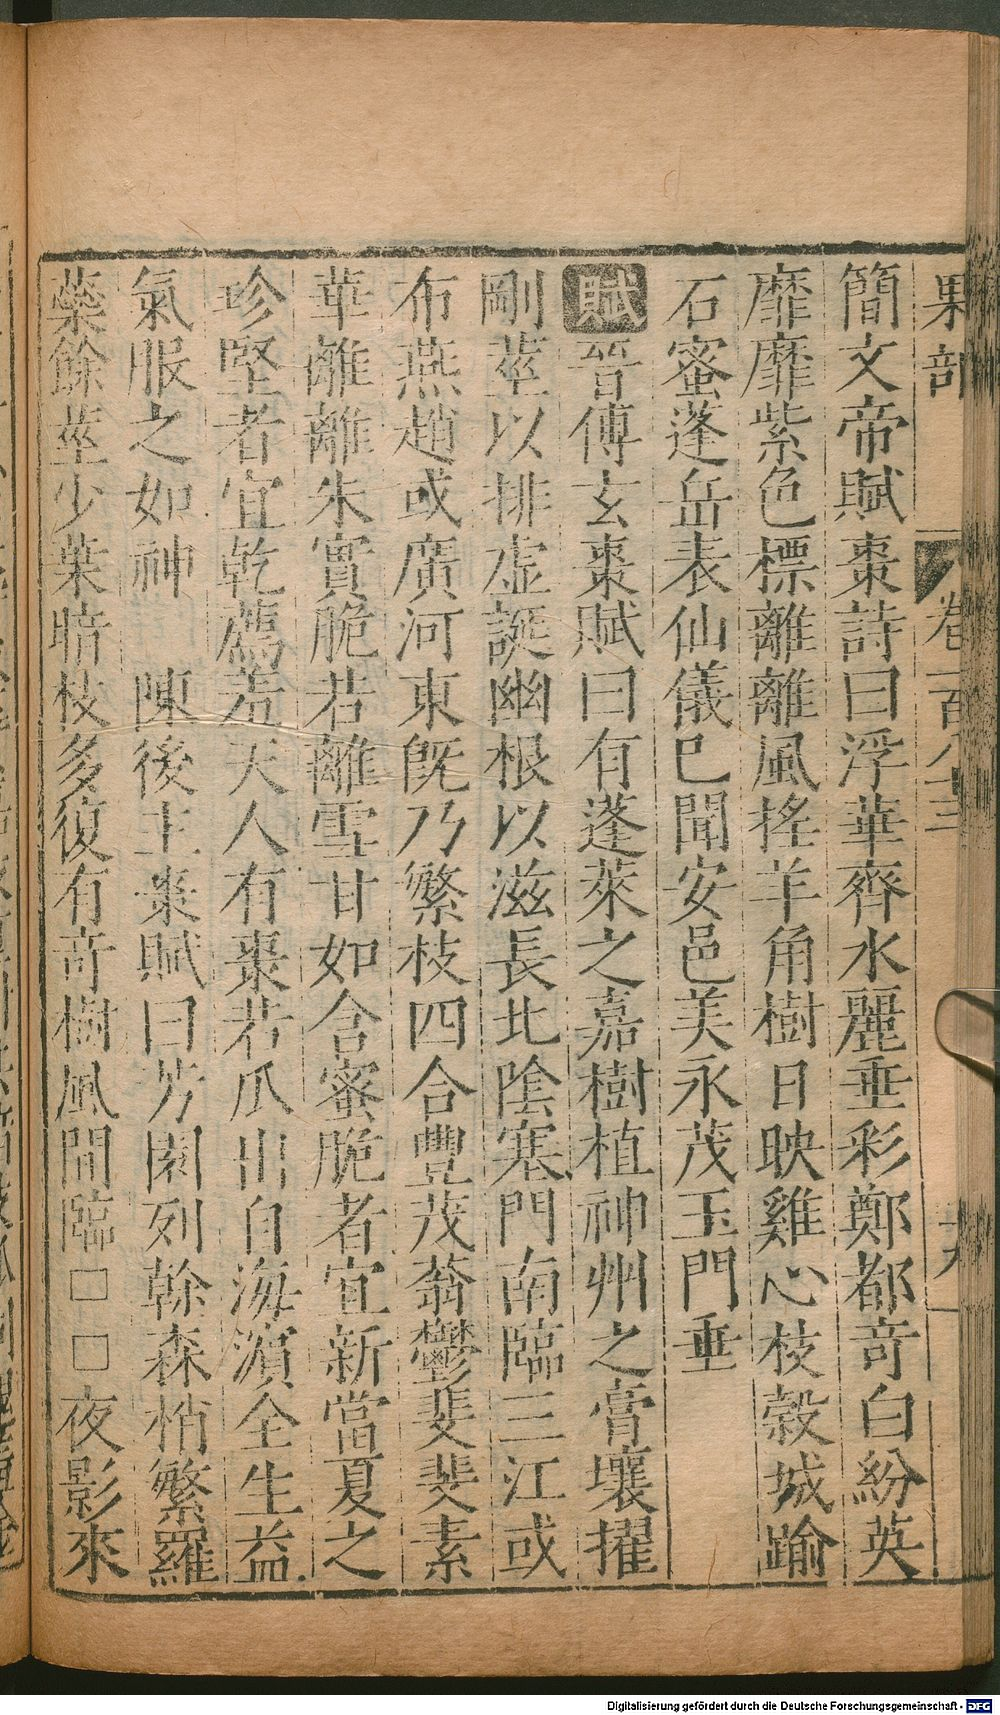 果部　卷一百八十三　十九
簡文帝賦棗詩曰浮華齊水麗垂彩鄭都竒白紛英
靡靡紫色標離離風搖羊角樹日映雞心枝穀城踰
石蜜蓬岳表仙儀巳聞安邑美永茂玉門垂
賦晉傅玄棗賦曰有蓬萊之嘉樹植神州之膏壤擢
剛莖以排虛誕幽根以滋長北陰塞門南臨三江或
布燕趙或廣河東旣乃繁枝四合豐茂蓊鬱斐斐素
華離離朱實脆若離雪甘如含蜜脆者宜新當夏之
珍堅者宜乾薦羞天人有棗若瓜出自海濵全生益
氣服之如神　陳後主棗賦曰芳園列榦森梢繁羅
蘂餘莖少葉暗枝多復有竒樹風間臨□□夜影來
Digitalisierung gefördert durch die Deutsche Forschungsgemeinschaft - DFG